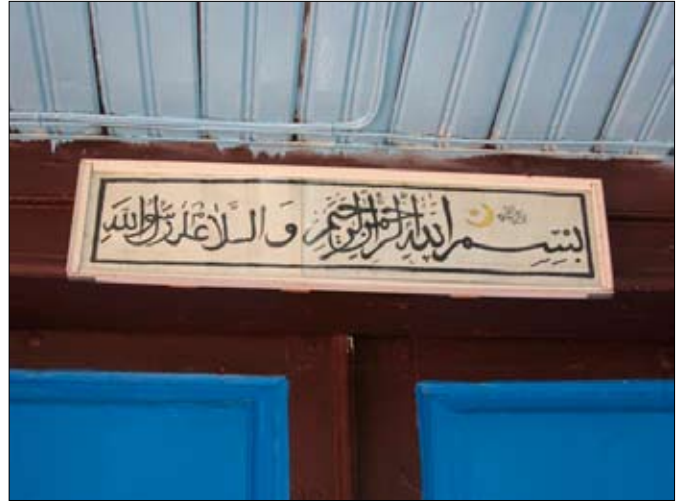 بسم الله الرحمن الرحيم والسلام على رسول الله